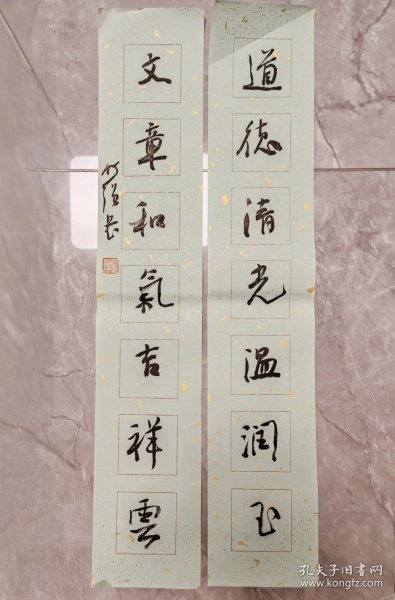 道德清光温润玉
文章和氣吉祥雲
孔夫子旧书网
www.kongfz.com